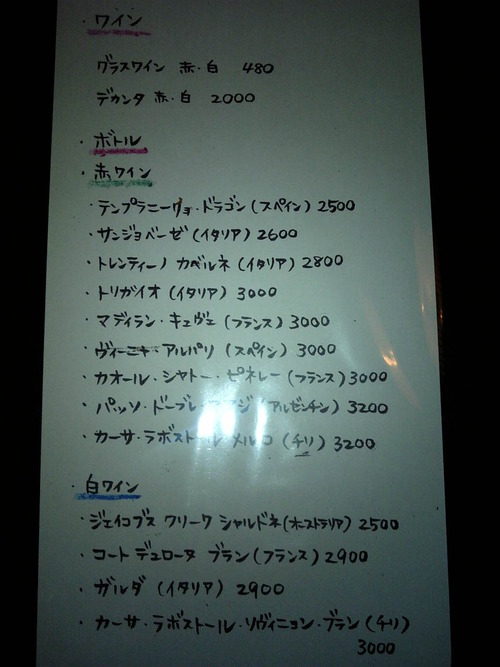 ・ワイン
グラスワイン 赤・白 480
デカンタ 赤・白 2000
・ボトル
・赤ワイン
・テンプラニーリョ・ドラゴン(スペイン)2500
・サンジョベーゼ(イタリア)2600
・トレンティーノ カベルネ(イタリア)2800
・トリガイオ(イタリア)3000
・マディラン・キュヴェ(フランス)3000
・ヴィーニャ・アルパリ(スペイン)3000
・カオール・シャトー・ピネレー(フランス)3000
・パッソ・ドーブレ (アルゼンチン)3200
・カーサ・ラボストール メルロ(チリ)3200
・白ワイン
・ジェイコブス クリーク シャルドネ(オーストラリア)2500
・コート デュローヌ ブラン(フランス)2900
・ガルダ(イタリア)2900
・カーサ・ラボストール・ソヴィニョン・ブラン(チリ)
3000